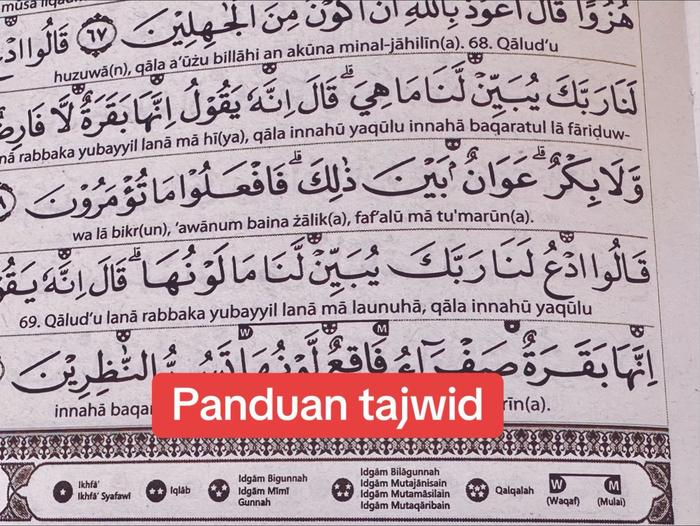 هُزُوًا ۗ قَالَ اَعُوْذُ بِاللّٰهِ اَنْ اَكُوْنَ مِنَ الْجٰهِلِيْنَ ٦٧ قَالُوا
huzuwā(n), qāla a'ūżu billāhi an akūna minal-jāhilīn(a). 68. Qālud'u
لَنَا رَبَّكَ يُبَيِّنْ لَّنَا مَا هِيَ ۗ قَالَ اِنَّهٗ يَقُوْلُ اِنَّهَا بَقَرَةٌ لَّا
rabbaka yubayyil lanā mā hī(ya), qāla innahū yaqūlu innahā baqaratul lā fāriḍuw-
وَّلَا بِكْرٌ ۗ عَوَانٌۢ بَيْنَ ذٰلِكَ ۗ فَافْعَلُوْا مَا تُؤْمَرُوْنَ
wa lā bikr(un), 'awānum baina żālik(a), faf'alū mā tu'marūn(a).
قَالُوا ادْعُ لَنَا رَبَّكَ يُبَيِّنْ لَّنَا مَا لَوْنُهَا ۗ قَالَ اِنَّهٗ
69. Qālud'u lanā rabbaka yubayyil lanā mā launuhā, qāla innahū yaqūlu
اِنَّهَا بَقَرَةٌ صَفْرَاۤءُ فَاقِعٌ لَّوْنُهَا النّٰظِرِيْنَ
innahā
Panduan tajwid
Ikhfā'
Ikhfā' Syafawī
Iqlāb
Idgām Bigunnah
Idgām Mīmī
Gunnah
Idgām Bilāgunnah
Idgām Mutajānisain
Idgām Mutamāsilain
Idgām Mutaqāribain
Qalqalah
W
(Waqaf)
M
(Mulai)